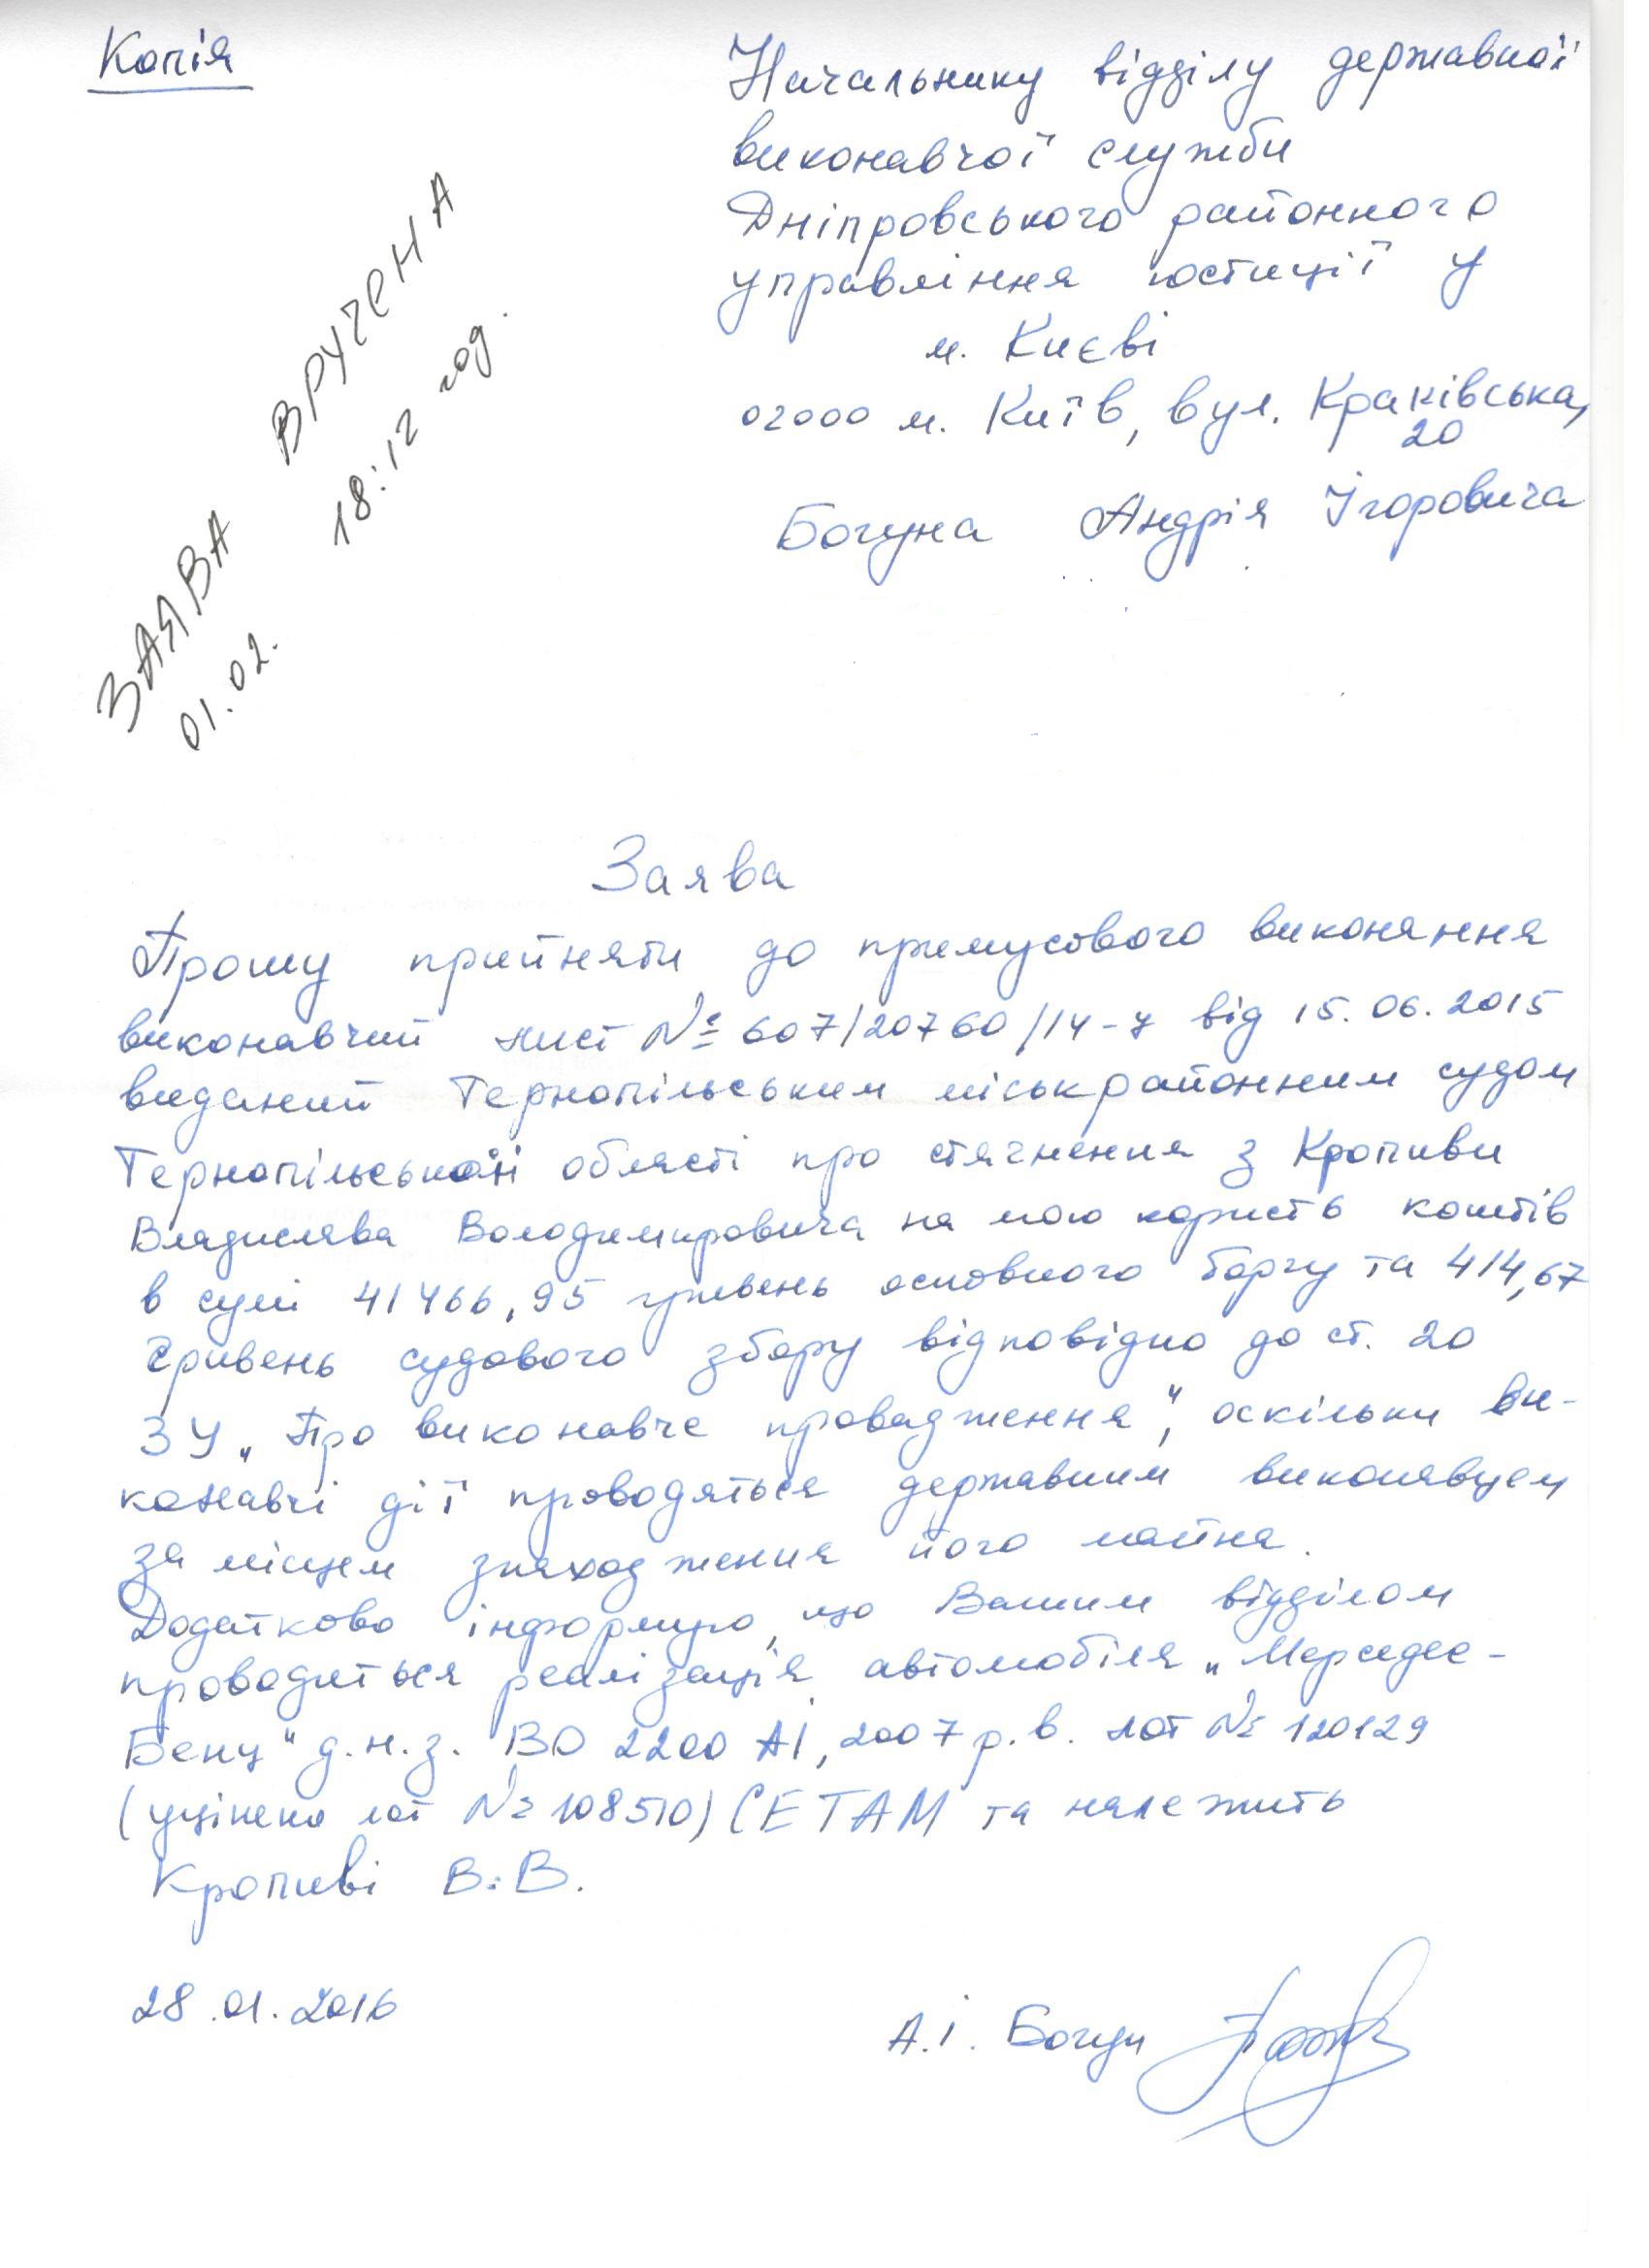 Копія
Начальнику відділу державної
виконавчої служби
Дніпровського районного
управління юстиції у
м. Києві
02000 м. Київ, вул. Краківська,
20
Богуна Андрія Ігоровича
ЗАЯВА ВРУЧЕНА
01.02. 18:12 год.
Заява
Прошу прийняти до примусового виконання
виконавчий лист № 607/20760/14-ц від 15.06.2015
виданий Тернопільським міськрайонним судом
Тернопільської області про стягнення з Кропиви
Владислава Володимировича на мою користь коштів
в сумі 41466,95 гривень основного боргу та 414,67
гривень судового збору відповідно до ст. 20
ЗУ „Про виконавче провадження", оскільки ви-
конавчі дії проводяться державним виконавцем
за місцем знаходження його майна.
Додатково інформую, що Вашим відділом
проводиться реалізація автомобіля „Мерседес-
Бенц" д.н.з. ВО 2200 АІ, 2007 р.в. лот № 120129
(уцінено лот № 108510) СЕТАМ та належить
Кропиві В.В.
28.01.2016
А.І. Богун